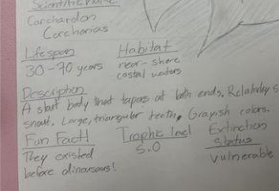 Scientific Name
Carcharodon
Carcharias
Lifespan
30-70 years
Habitat
near-shore
costal waters
Description
A stout body that tapers at both ends. Relatively s
snout. Large, triangular teeth. Grayish colors.
Fun Fact!
They existed
before dinosaurs!
Trophic level
5.0
Extinction
status
vulnerable